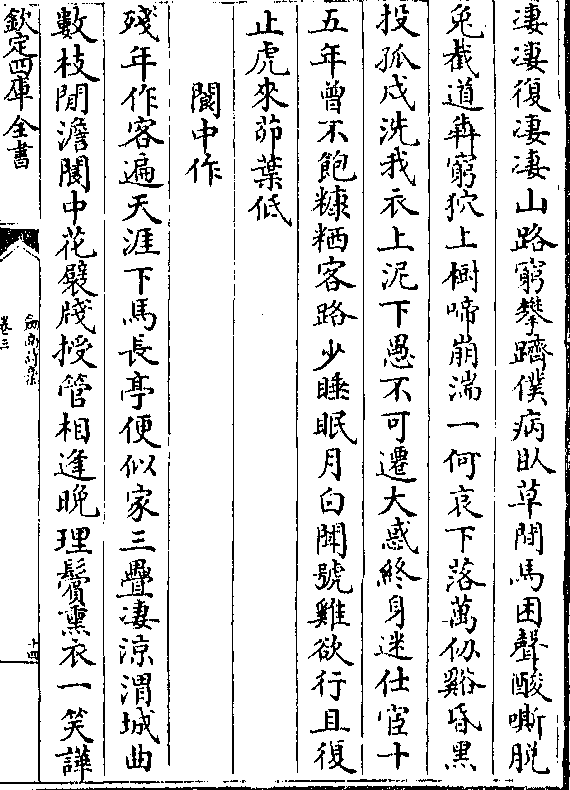 凄凄復凄凄山路窮攀躋僕病臥草間馬困聲酸嘶脫
兔截道奔窮狖上樹啼崩湍一何哀下落萬仞谿昏黑
投孤戍洗我衣上泥下愚不可遷大惑終身迷仕宦十
五年曾不飽糠粞客路少睡眠月白聞號雞欲行且復
止虎來茆葉低
閬中作
殘年作客遍天涯下馬長亭便似家三疊凄涼渭城曲
數枝閒澹閬中花襞牋授管相逢晚理鬢熏衣一笑譁
欽定四庫全書
劍南詩藁
卷三
十四